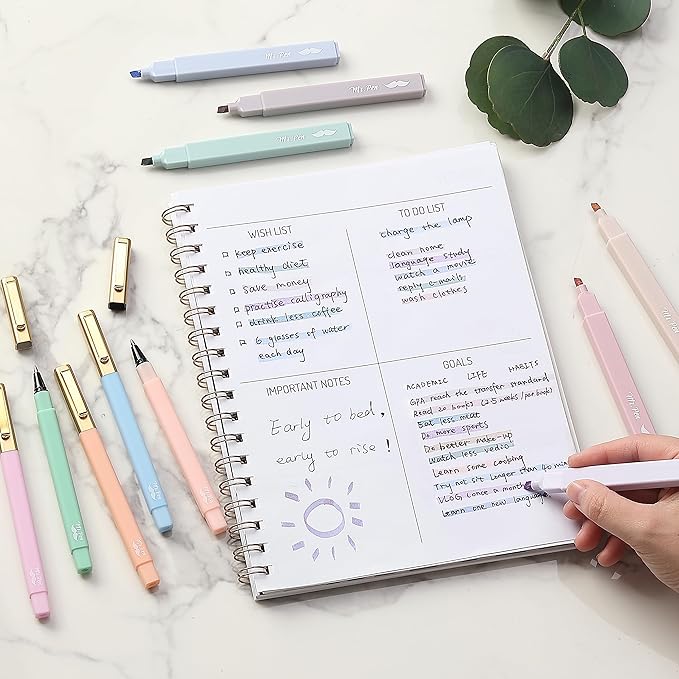 Mr. Pen
Mr. Pen
Mr. Pen
WISH LIST
keep exercise
healthy diet
save money
practise calligraphy
drink less coffee
6 glasses of water
each day
TO DO LIST
charge the lamp
clean home
language study
watch a movie
reply e-mails
wash clothes
IMPORTANT NOTES
Early to bed,
early to rise!
GOALS
ACADEMIC LIFE HABITS
GPA reach the transfer standard
Read 20 books (2.5 weeks / per book)
Eat less meat
Do more sports
Do better make-up
Watch less vedio
Learn some cooking
Try not sit longer than 40 min
VLOG (once a month
Learn one new language
Mr. Pen
Mr. Pen